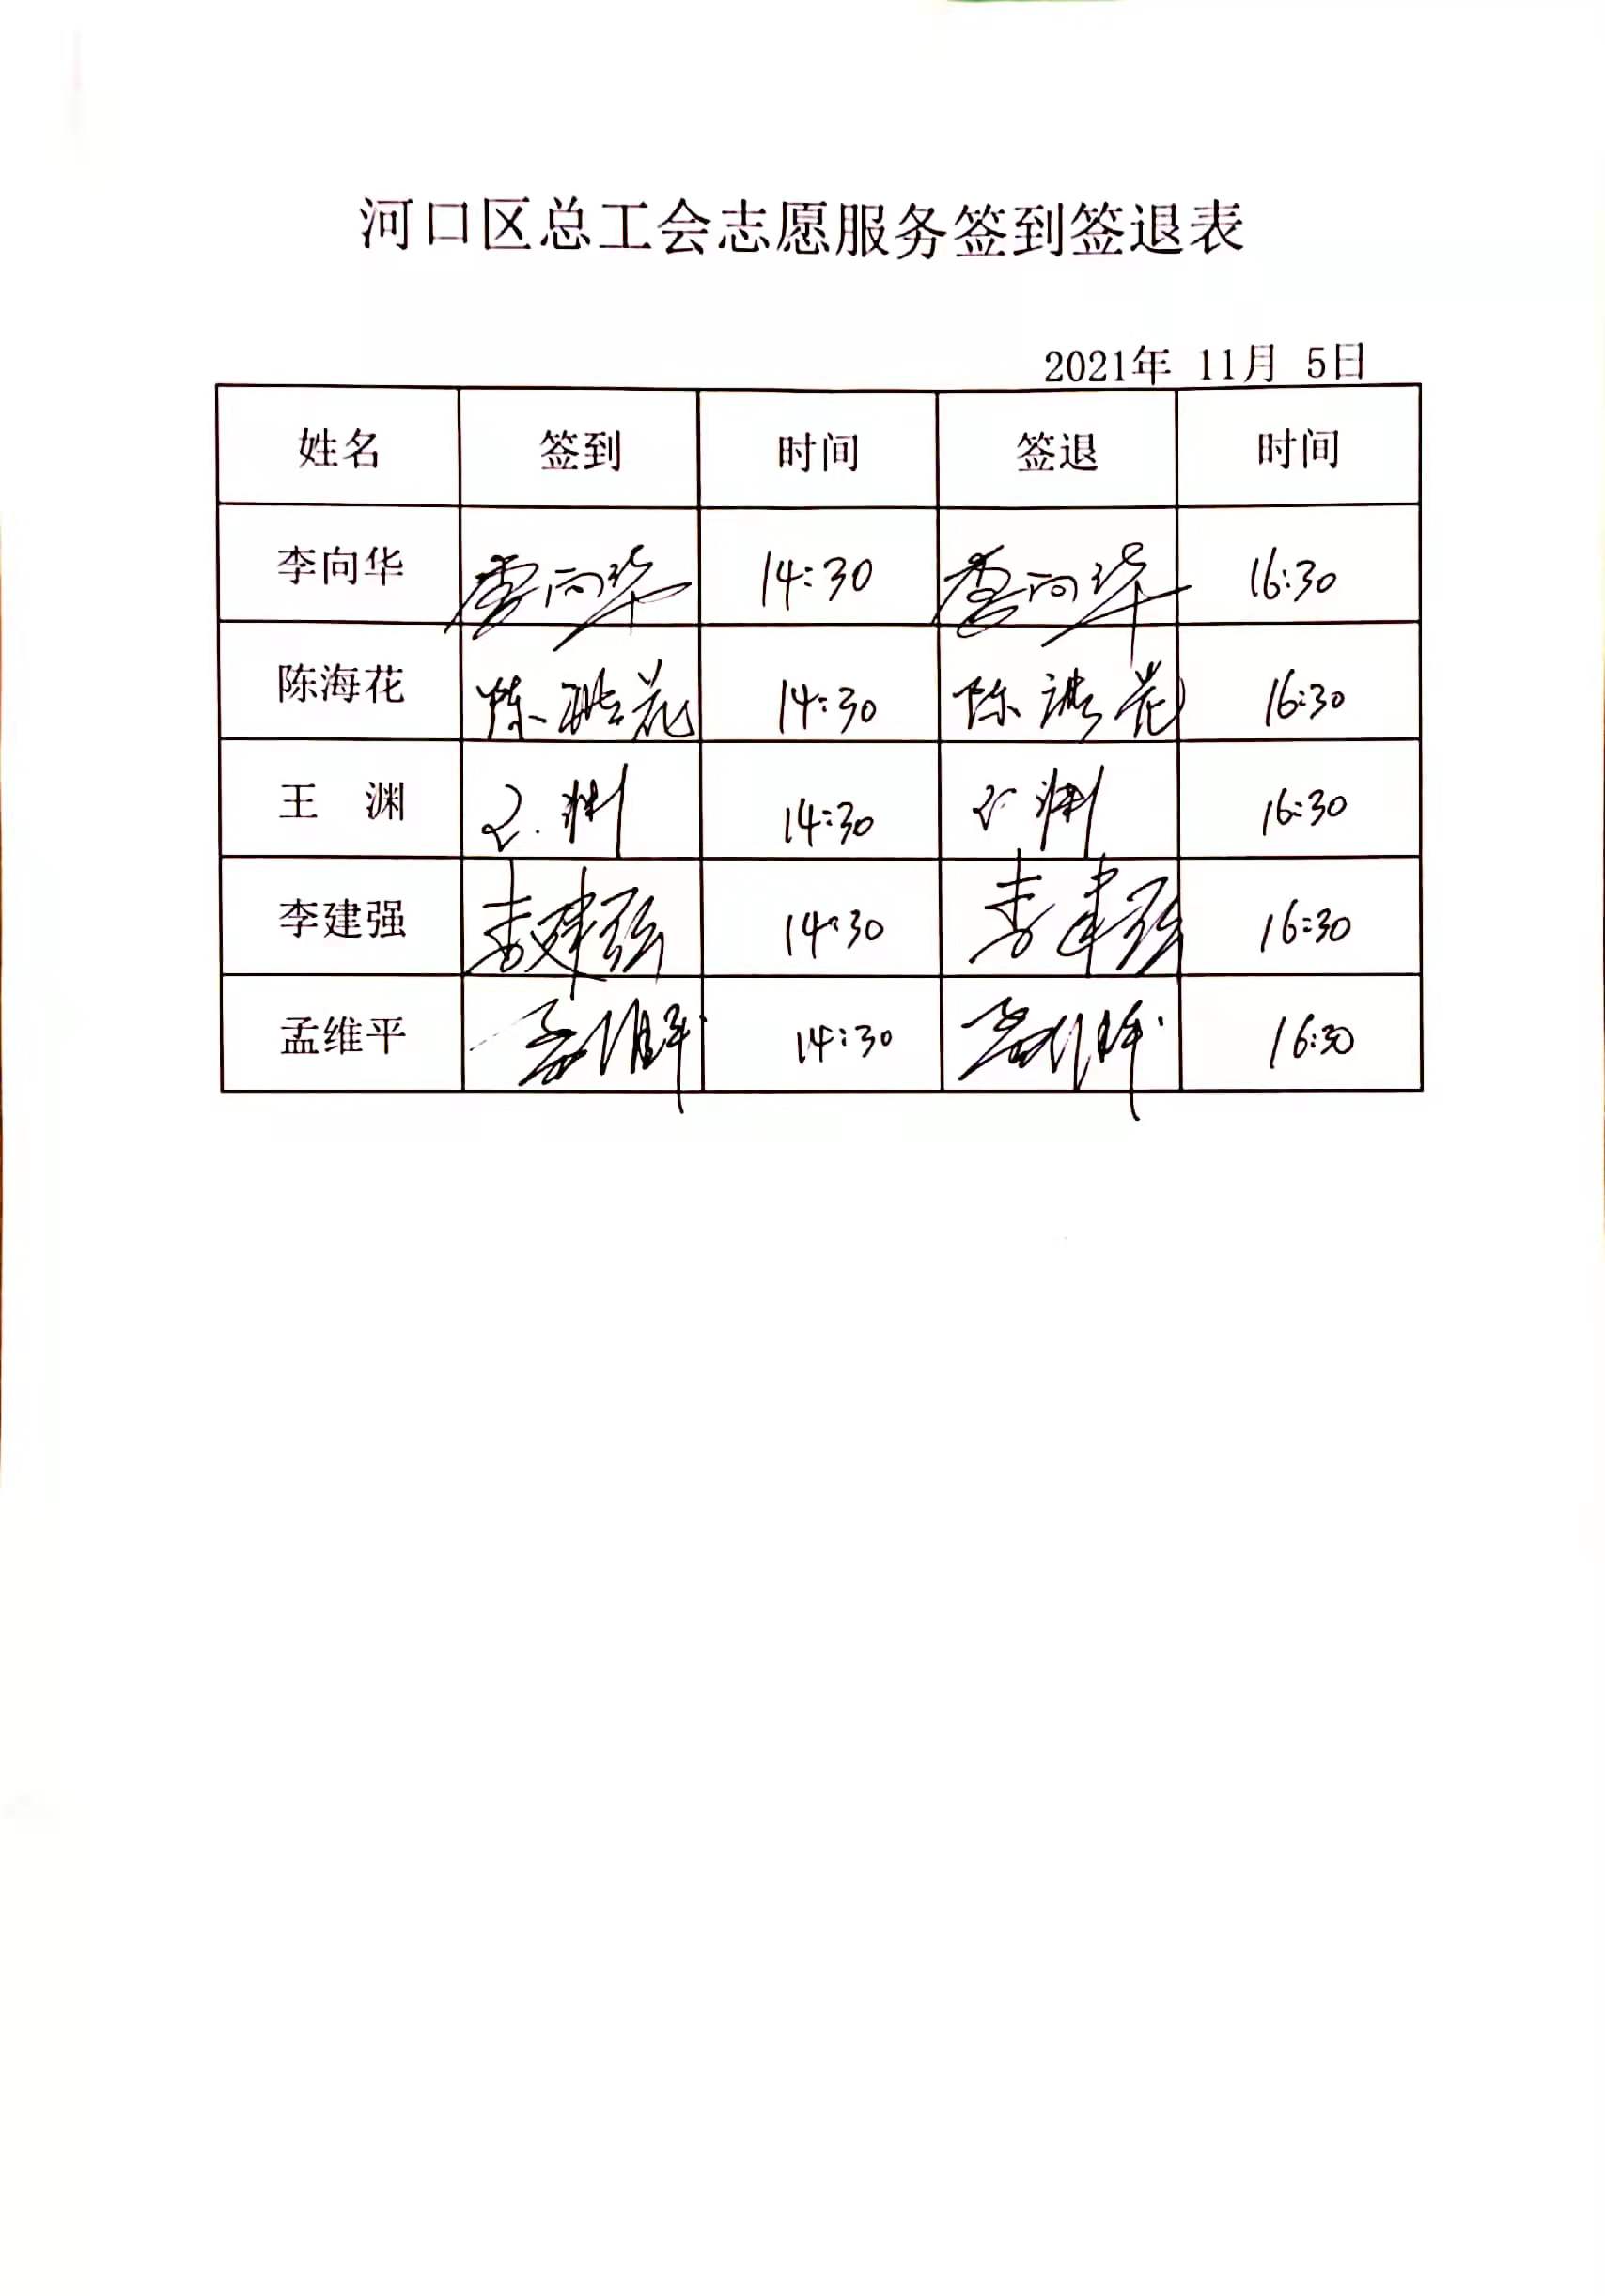 河口区总工会志愿服务签到签退表
2021年 11月 5日
姓名 签到 时间 签退 时间
李向华 李向华 14:30 李向华 16:30
陈海花 陈海花 14:30 陈海花 16:30
王 渊 王渊 14:30 王渊 16:30
李建强 李建强 14:30 李建强 16:30
孟维平 孟维平 14:30 孟维平 16:30